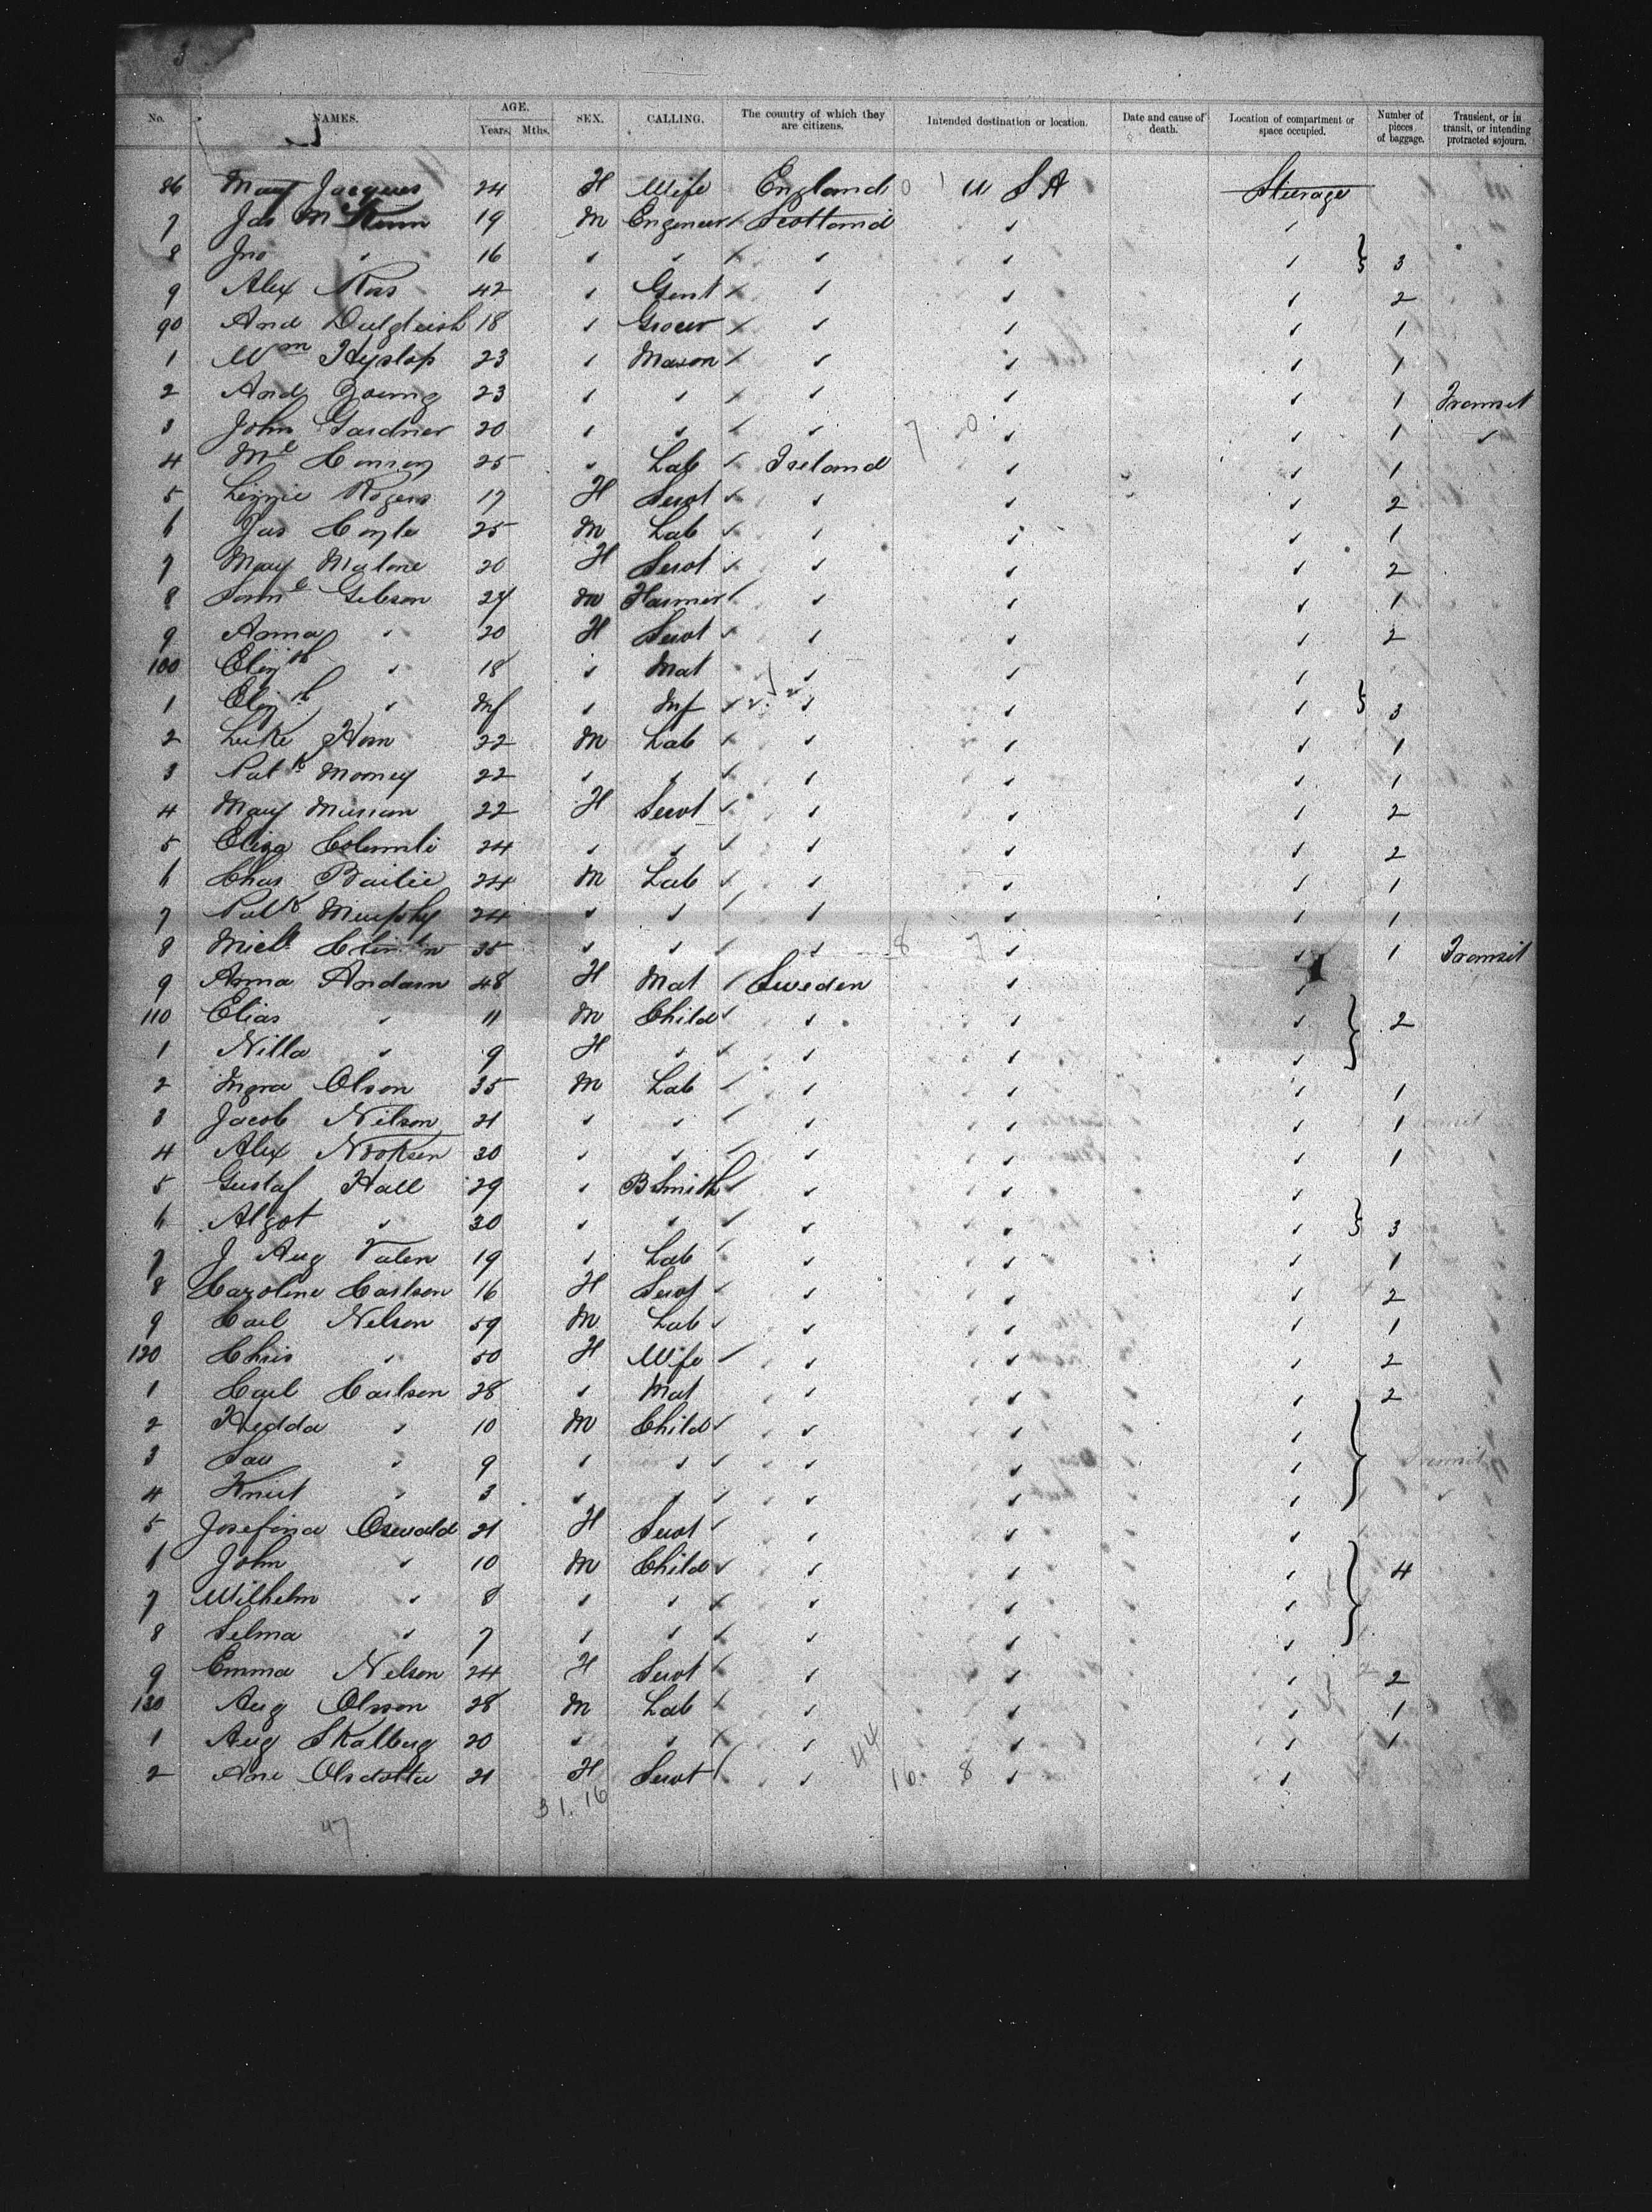 3
No. NAMES. AGE. Years. Mths. SEX. CALLING. The country of which they are citizens. Intended destination or location. Date and cause of death. Location of compartment or space occupied. Number of pieces of baggage. Transient, or in transit, or intending protracted sojourn.
86 Mary Jacques 24 F Wife England 0 1 U S A Steerage
7 Jas 19 M Engineer Scotland ✓ ✓
8 Jno " 16 ✓ ✓ ✓ ✓ ✓ 3
9 Alex Ross 42 ✓ Gent ✓ ✓ ✓ 2
90 And Dalgleish 18 ✓ Grocer ✓ ✓ ✓ 1
1 Wm Hyslop 23 ✓ Mason ✓ ✓ ✓ 1
2 And Young 23 ✓ ✓ ✓ ✓ ✓ 1 Transit
3 John Gardner 20 ✓ ✓ ✓ 7 0 ✓ ✓ 1 ✓
4 25 ✓ Lab Ireland ✓ ✓ 1
5 Lizzie Rogers 17 F Servt ✓ ✓ ✓ 2
6 Jas Coyle 25 M Lab ✓ ✓ ✓ 1
7 Mary Malone 20 F Servt ✓ ✓ ✓ 2
8 Saml Gibson 24 M Farmer ✓ ✓ ✓ 1
9 Anna " 20 F Servt ✓ ✓ ✓ 2
100 Elizth " 18 ✓ Mat ✓ ✓ ✓
1 Elizth " Inf ✓ Inf ✓ ✓ ✓ 3
2 Luke Horn 22 M Lab ✓ ✓ ✓ 1
3 Patk Mooney 22 ✓ ✓ ✓ ✓ ✓ 1
4 Mary 22 F Servt ✓ ✓ ✓ 2
5 Eliza 24 ✓ ✓ ✓ ✓ ✓ 2
6 Chas Bailie 24 M Lab ✓ ✓ ✓ 1
7 Patk Murphy 24 ✓ ✓ ✓ ✓ ✓ 1
8 Michl Clinton 35 ✓ ✓ ✓ 8 7 ✓ ✓ 1 Transit
9 Anna 48 F Mat Sweden ✓ ✓
110 Elias " 11 M Child ✓ ✓ ✓ 2
1 Nilla " 9 F ✓ ✓ ✓ ✓
2 Ingra Olson 35 M Lab ✓ ✓ ✓ 1
3 Jacob Nilson 21 ✓ ✓ ✓ ✓ ✓ 1
4 Alex 30 ✓ ✓ ✓ ✓ ✓ 1
5 Gustaf Hall 29 ✓ B Smith ✓ ✓ ✓
6 Algot " 30 ✓ ✓ ✓ ✓ ✓ 3
7 J Aug Valen 19 ✓ Lab ✓ ✓ ✓ 1
8 Caroline Carlson 16 F Servt ✓ ✓ ✓ 2
9 Carl Nelson 59 M Lab ✓ ✓ ✓ 1
120 Chris " 50 F Wife ✓ ✓ ✓ 2
1 Carl Carlson 28 ✓ Mat ✓ ✓ ✓ 2
2 Hedda " 10 M Child ✓ ✓ ✓
3 " 9 ✓ ✓ ✓ ✓ ✓ Transit
4 Knut " 3 ✓ ✓ ✓ ✓ ✓ ✓
5 Josefina Oswald 21 F Servt ✓ ✓ ✓
6 John " 10 M Child ✓ ✓ ✓ 4
7 Wilhelm " 8 ✓ ✓ ✓ ✓ ✓
8 Selma " 7 ✓ ✓ ✓ ✓ ✓
9 Emma Nelson 24 F Servt ✓ ✓ ✓ 2
130 Aug Olsson 28 M Lab ✓ ✓ ✓ 1
1 Aug Skalberg 20 ✓ ✓ ✓ 44 ✓ ✓ 1
2 Ane Olsdotter 21 F Servt ✓ 16 8 ✓ ✓
31. 16
47